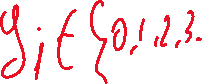 y_i ∈ {0, 1, 2, 3.